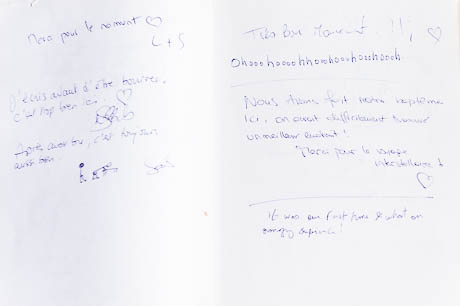 Merci pour le moment ♡
L + S
J'écris avant d'être bourrée,
c'est trop bien ici. ♡
Après avoir bu, c'est toujours
aussi bien.
Très Bon Moment !!! ♡
Ohooohooohhoohoohoohoohooh
Nous avons fait notre baptême
ici, on avait difficilement trouvé
un meilleur endroit !
Merci pour le voyage
interstellaire ! ♡
It was our first time & what an
amazing experience !